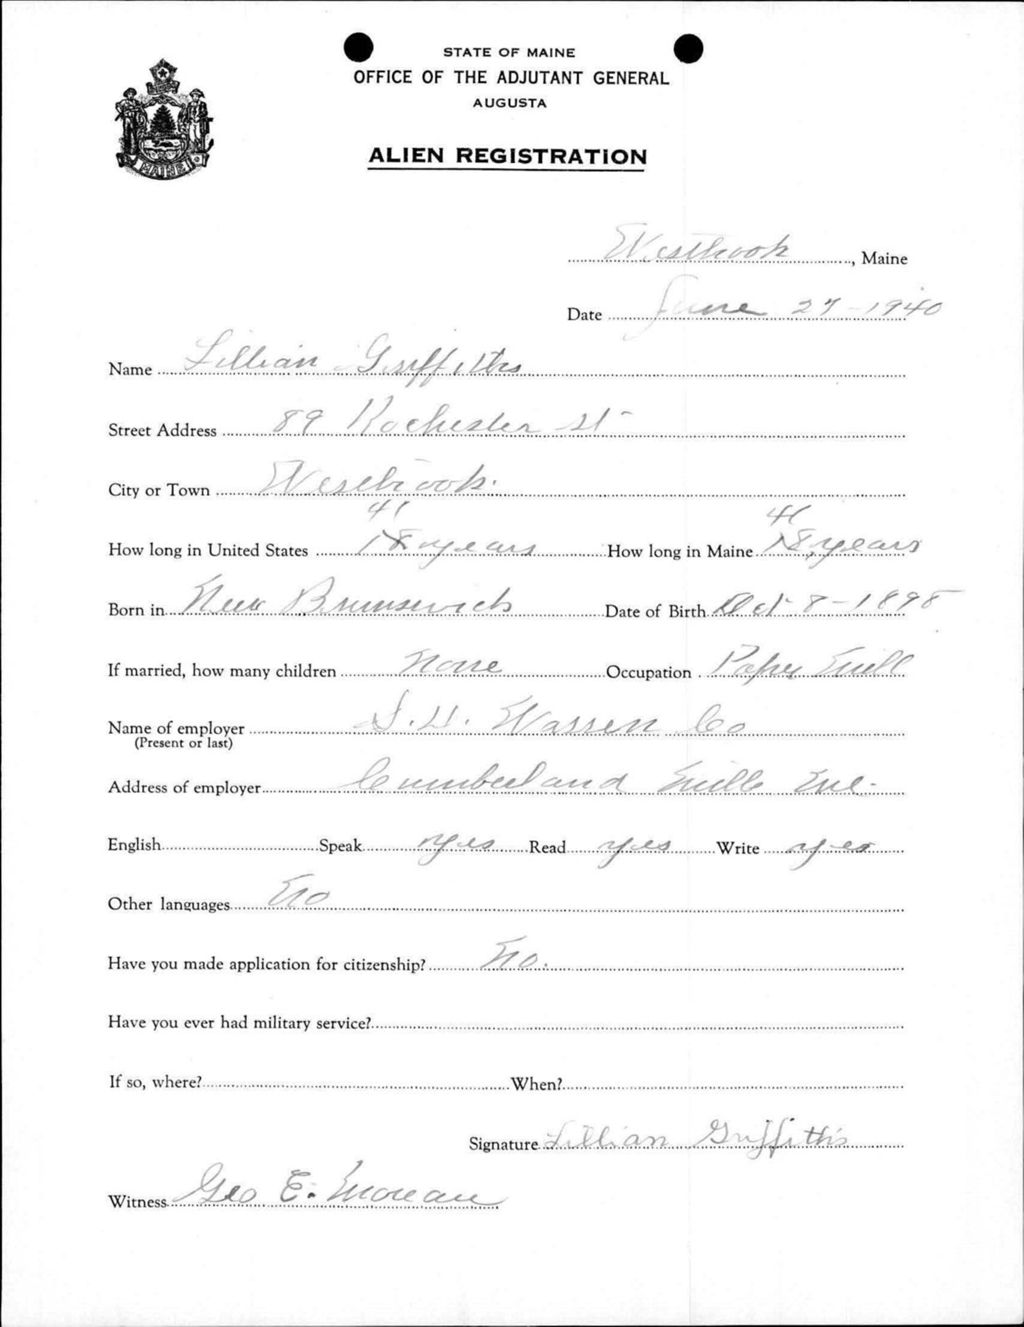 STATE OF MAINE
OFFICE OF THE ADJUTANT GENERAL
AUGUSTA
ALIEN REGISTRATION
MAINE
Westbrook, Maine
Date June 27-1940
Name Lillian Griffiths
Street Address 89 Rochester St
City or Town Westbrook.
41 41
How long in United States 18 years How long in Maine 18 years
Born in New Brunswick Date of Birth Oct 8-1898
If married, how many children None Occupation Paper Mill
Name of employer S. D. Warren Co
(Present or last)
Address of employer Cumberland Mills Me.
English Speak yes Read yes Write yes
Other languages No
Have you made application for citizenship? No.
Have you ever had military service?
If so, where? When?
Signature Lillian Griffiths
Witness Geo E. Moreau